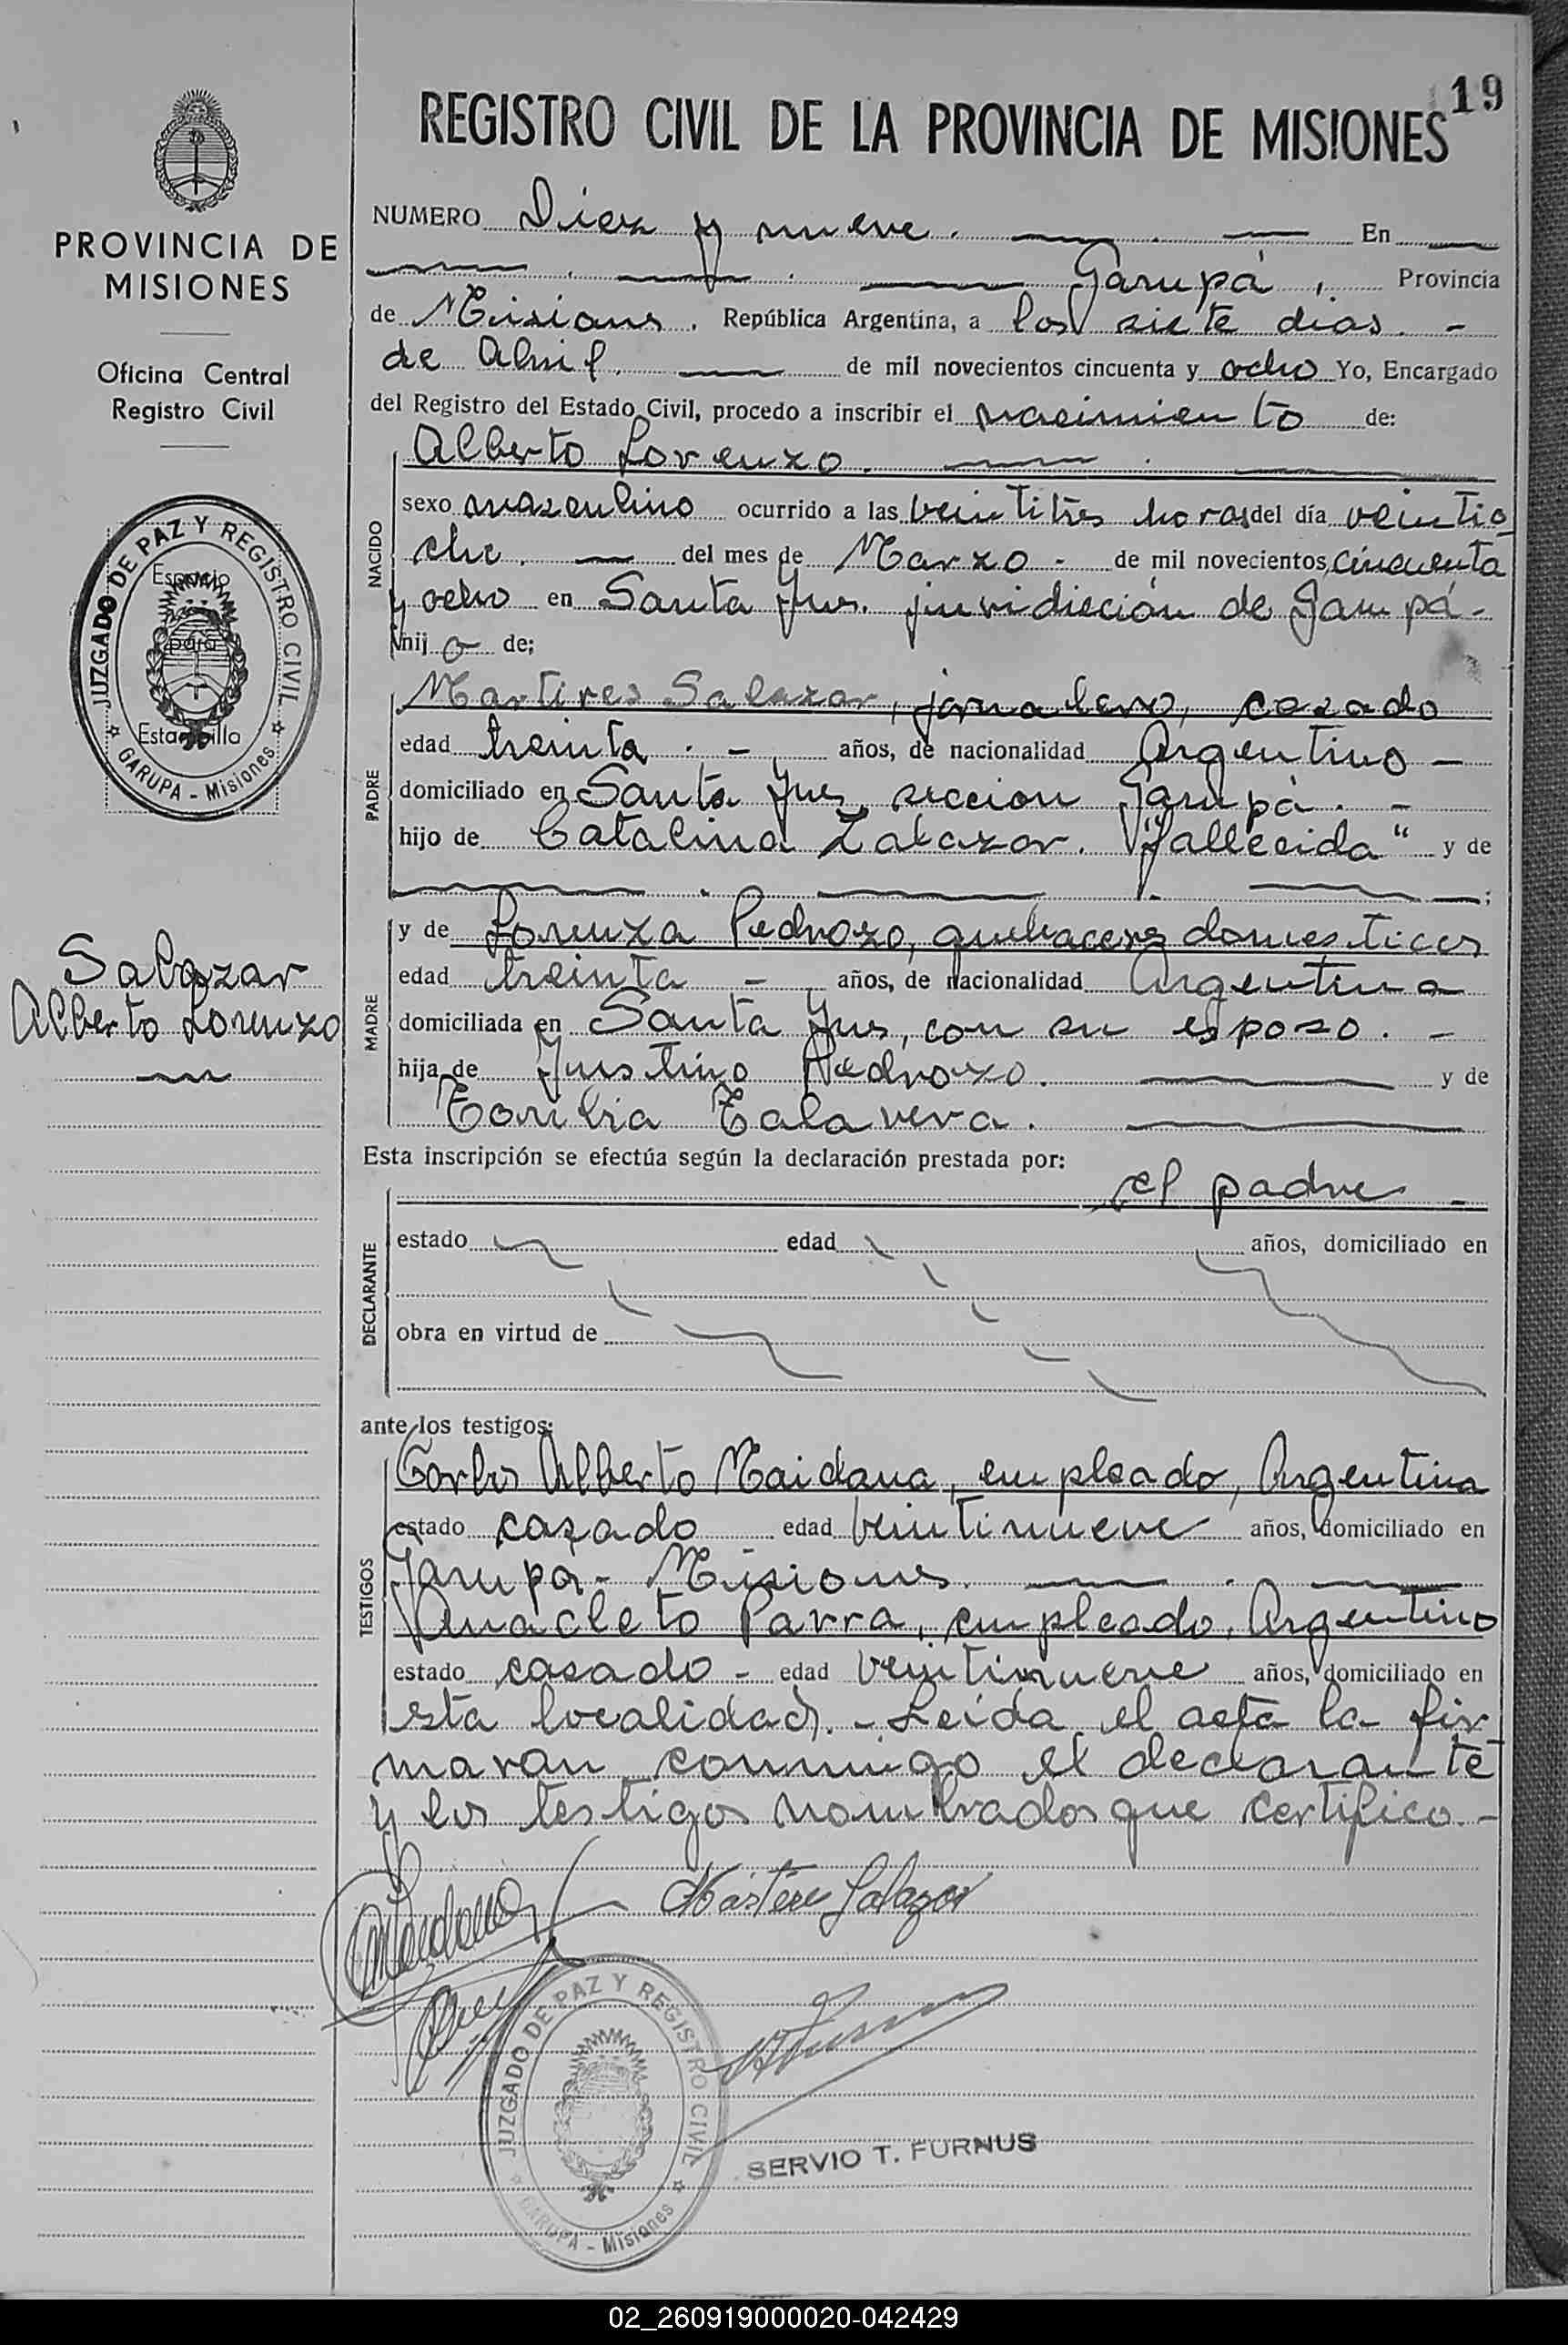 19
REGISTRO CIVIL DE LA PROVINCIA DE MISIONES
PROVINCIA DE
MISIONES
Oficina Central
Registro Civil
JUZGADO DE PAZ Y REGISTRO CIVIL
Espacio
para
Estampilla
GARUPA - Misiones
Salazar
Alberto Lorenzo
NUMERO Diez y nueve. En
Garupá, Provincia
de Misiones. República Argentina, a los siete días. -
de Abril. de mil novecientos cincuenta y ocho Yo, Encargado
del Registro del Estado Civil, procedo a inscribir el nacimiento de:
NACIDO
Alberto Lorenzo.
sexo masculino ocurrido a las veintitrés horas del día veintio
cho. del mes de Marzo - de mil novecientos cincuenta
y ocho en Santa Ynes. juridicción de Garupá -
hij o de;
PADRE
Martires Salazar, jornalero, casado
edad treinta . - años, de nacionalidad Argentino -
domiciliado en Santa Ynes, seccion Garupá. -
hijo de Catalina Zalazar. "fallecida" y de
MADRE
y de Lorenza Pedrozo, quehaceres domesticos
edad treinta - años, de nacionalidad Argentina
domiciliada en Santa Ynes, con su esposo. -
hija de Justino Pedrozo. y de
Toribia Talavera.
Esta inscripción se efectúa según la declaración prestada por:
DECLARANTE
el padre -
estado edad años, domiciliado en
obra en virtud de
ante los testigos:
TESTIGOS
Carlos Alberto Maidana, empleado, Argentina
estado casado edad veintinueve años, domiciliado en
Garupá - Misiones.
Anacleto Parra, empleado, Argentino
estado casado - edad veintinueve años, domiciliado en
esta localidad. - Leída el acta la fir
maran conmigo el declarante
y los testigos nombrados que certifico. -
Martires Salazar
JUZGADO DE PAZ Y REGISTRO CIVIL
GARUPA - Misiones
SERVIO T. FURNUS
02_260919000020-042429